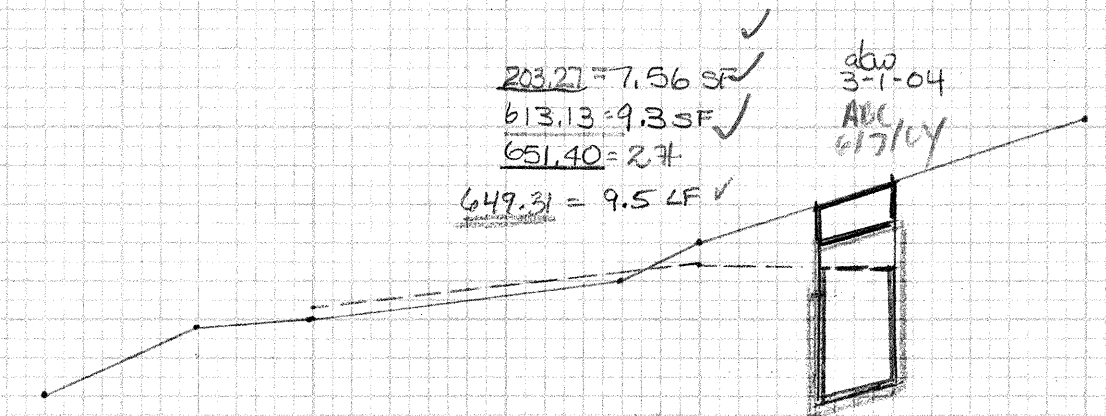 203.27 = 7.56 SF ✓
613.13 = 9.3 SF ✓
651.40 = 27#
649.31 = 9.5 LF ✓
abw
3-1-04
ABC
6/7/04